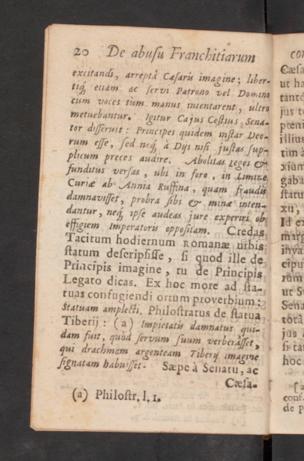 20 De abusu Franchitiarum
excitandi, arreptâ Cæsaris imagine; liber-
tiq́; etiam ac servi Patrono vel Domino
cum voces tum manus intentarent, ultro
metuebantur. Igitur Cajus Cestius, Sena-
tor disseruit: Principes quidem instar Deo-
rum esse, sed neq́; à Dijs nisi justas sup-
plicum preces audire. Abolitas leges &
funditus versas, ubi in foro, in limine
Curiæ ab Annia Ruffina, quam fraudis
damnavisset, probra sibi & minæ inten-
dantur, neq́; ipse audeas jure experiri ob
effigiem Imperatoris oppositam. Credas
Tacitum hodiernum Romanæ urbis
statum descripsisse, si quod ille de
Principis imagine, tu de Principis
Legato dicas. Ex hoc more ad sta-
tuas confugiendi ortum proverbium:
Statuam amplecti. Philostratus de statua
Tiberij: (a) Impietatis damnatus qui-
dam fuit, quòd servum suum verberâsset,
qui drachmam argenteam Tiberij imagine
signatam habuisset. Sæpè à Senatu, ac
Cæsa-
(a) Philostr, l, 1.